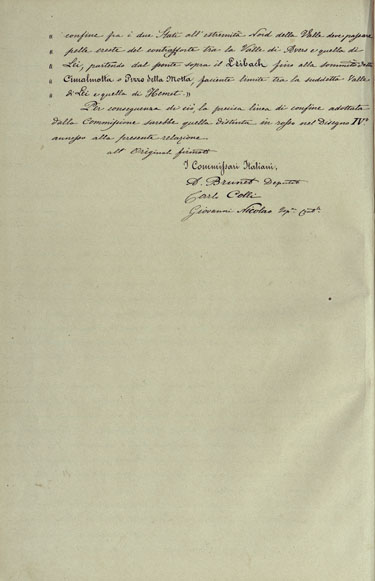 « confine fra i due Stati all'estremità Nord della Valle deve passare
« pella cresta del contrafforte tra la Valle di Avers e quella di
« Lei, partendo dal ponte sopra il Reibach fino alla sommità della
« Cimalmotta o Pizzo della Motta, facente limite tra la suddetta Valle
« di Lei e quella di Hemet. »
Per conseguenza di ciò, la precisa linea di confine adottata
dalla Commissione sarebbe quella distinta in rosso nel Disegno IV°
annesso alla presente relazione.
all' Original firmati
I Commissari Italiani,
A. Brunet Deputato
Carlo Colli
Giovanni Nicolao